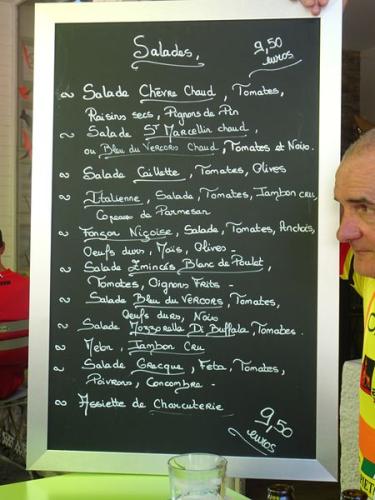 Salades,
9,50
euros
~ Salade Chèvre Chaud, Tomates,
Raisins secs, Pignons de Pin
~ Salade ST Marcellin chaud,
ou Bleu du Vercors Chaud, Tomates et Noix.
~ Salade Caillette, Tomates, Olives
~ Italienne, Salade, Tomates, Jambon cru,
Copeaux de Parmesan
~ Façon Niçoise, Salade, Tomates, Anchois,
Oeufs durs, Maïs, Olives -
~ Salade Emincés Blanc de Poulet,
Tomates, Oignons Frits -
~ Salade Bleu du Vercors, Tomates,
Oeufs durs, Noix
~ Salade Mozzorella Di Buffala, Tomates.
~ Melon, Jambon Cru
~ Salade Grecque, Féta, Tomates,
Poivrons, Concombre -
~ Assiette de Charcuterie
9,50
euros